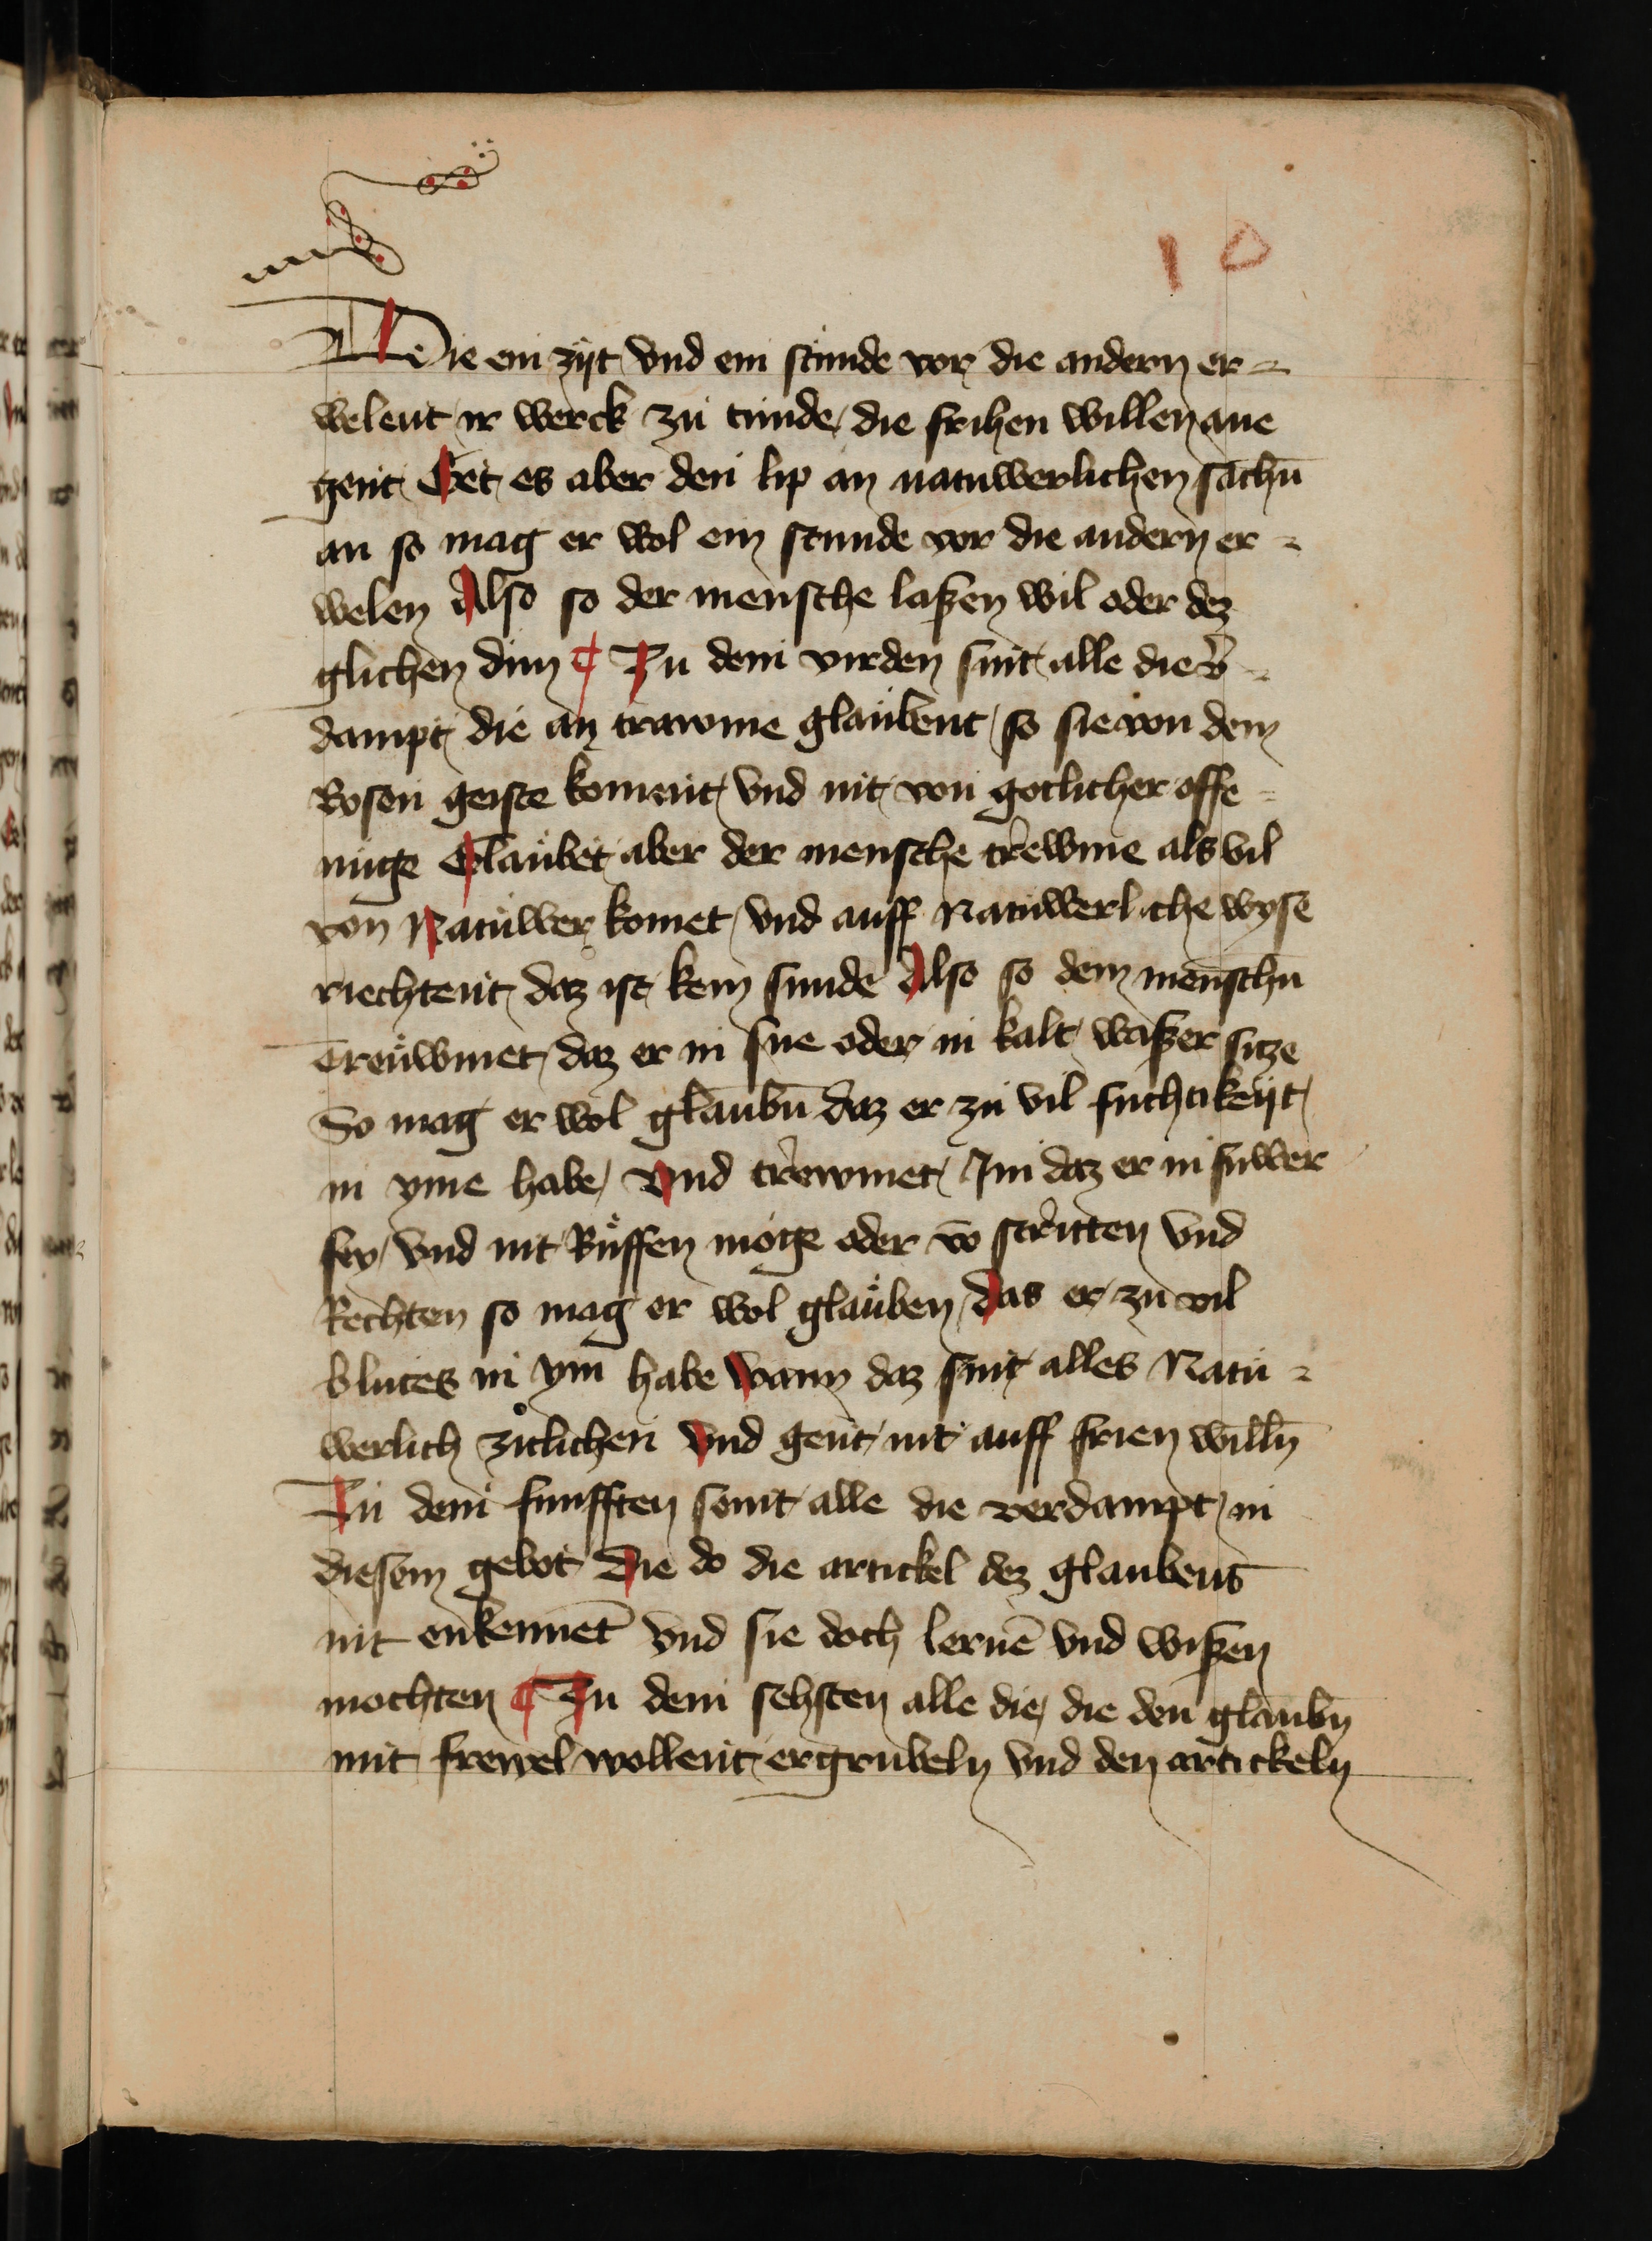 10
Die ein zijt vnd ein stunde vor die andern er=
welent ir werck zu tunde die frihen willen ane
gent Get es aber den lip an natuwerlichen sachn̄
an so mag er wol ein stunde vor die andern er=
welen Also so der mensche laßen wil oder dez
glichen dun ¶ Zu dem virden sint alle die v̄=
dampt die an trawme glaubent so sie von dem
Bosen geiste koment vnd nit von gotlicher offe=
nuge Glaubet aber der mensche trewme als vil
von Natuwer komet vnd auff Natuwerliche wyse
riechtent daz ist kein sunde Also so dem menschn̄
Treuwmet daz er in sne oder in kalt waßer sitze
So mag er wol glaubn̄ daz er zu vil fuchtikeijt
in yme habe Vnd trewmet Im daz er in fuwer
sey vnd nit Ruffen moge oder vō stritten vnd
Rechten so mag er wol glauben das er zu vil
blutes in ym habe wann daz sint alles Natu=
werlich zitlichen vnd gent nit auff frien willn̄
Zu dem funfften seint alle die verdampt in
diesem gebot Die do die artickel dez glaubens
nit enkennet vnd sie doch lernē vnd wißen
mochten ¶ Zu dem sehsten alle die die den glaubn̄
mit frewel wollent ergrubeln vnd den artickeln